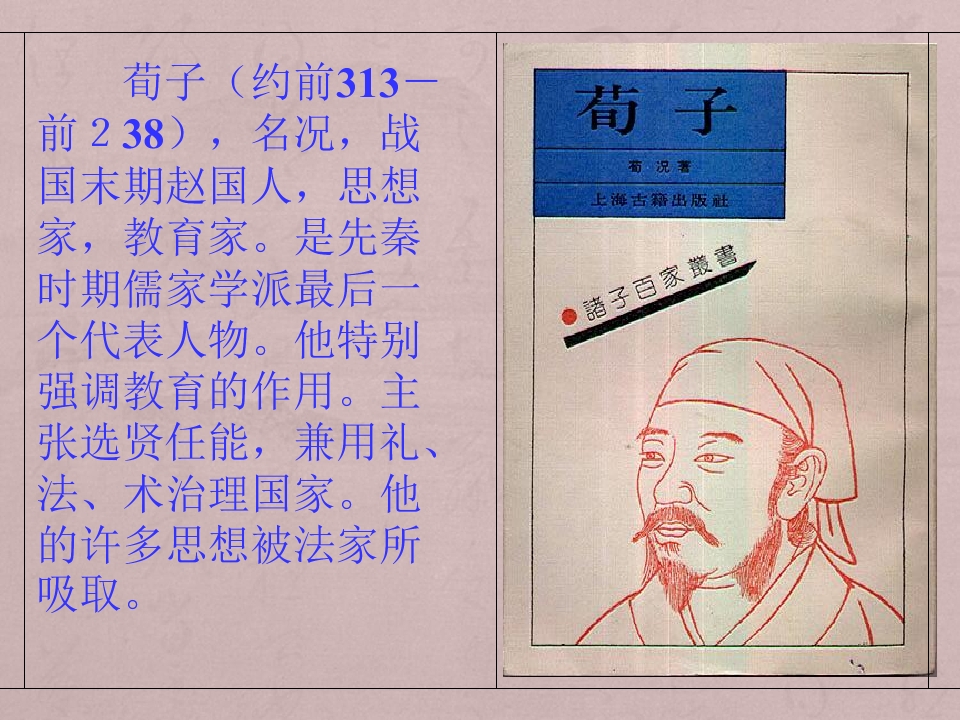 荀子（约前313－
前２38），名况，战
国末期赵国人，思想
家，教育家。是先秦
时期儒家学派最后一
个代表人物。他特别
强调教育的作用。主
张选贤任能，兼用礼、
法、术治理国家。他
的许多思想被法家所
吸取。
荀子
荀况著
上海古籍出版社
諸子百家叢書